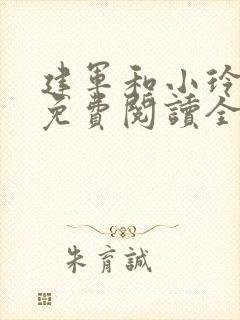 建軍和小玲
免費閱讀全
朱育誠